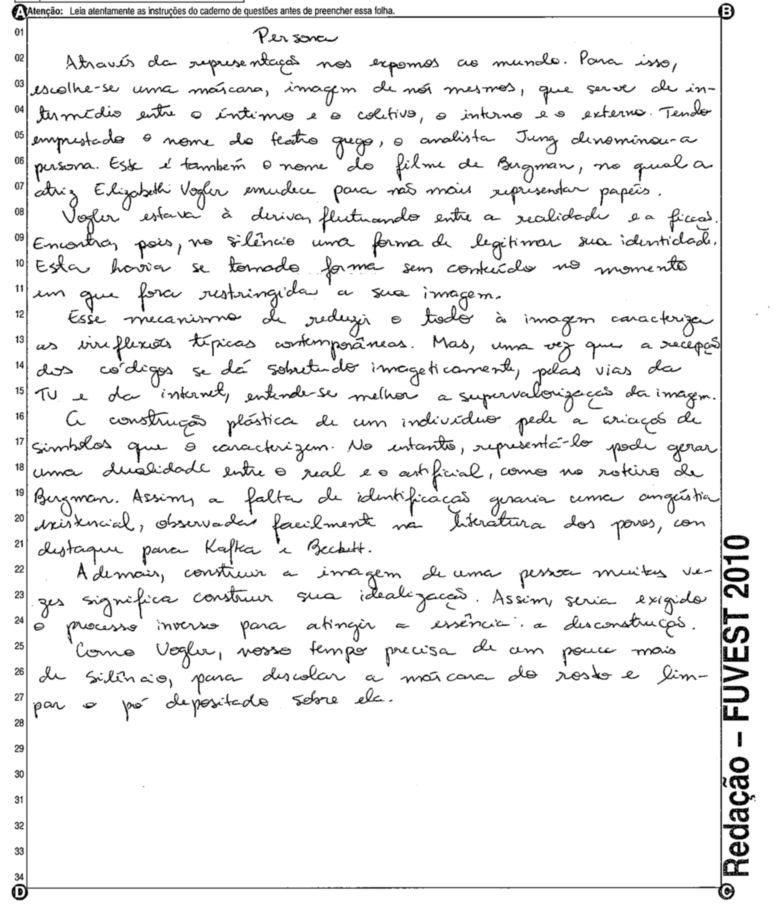 Atenção: Leia atentamente as instruções do caderno de questões antes de preencher essa folha.
A
B
01 Persona
02 Através da representação nos expomos ao mundo. Para isso,
03 escolhe-se uma máscara, imagem de nós mesmos, que serve de in-
04 termédio entre o íntimo e o coletivo, o interno e o externo. Tendo
05 emprestado o nome do teatro grego, o analista Jung denominou-a
06 persona. Esse é também o nome do filme de Bergman, no qual a
07 atriz Elizabeth Vogler emudece para não mais representar papéis.
08 Vogler estava à deriva, flutuando entre a realidade e a ficção.
09 Encontra, pois, no silêncio uma forma de legitimar sua identidade.
10 Esta havia se tornado forma sem conteúdo no momento
11 em que fora restringida a sua imagem.
12 Esse mecanismo de reduzir o todo à imagem caracteriza
13 as irreflexões típicas contemporâneas. Mas, uma vez que a recepção
14 dos códigos se dá sobretudo imageticamente, pelas vias da
15 TV e da internet, entende-se melhor a supervalorização da imagem.
16 A construção plástica de um indivíduo pede a criação de
17 símbolos que o caracterizem. No entanto, representá-lo pode gerar
18 uma dualidade entre o real e o artificial, como no roteiro de
19 Bergman. Assim, a falta de identificação geraria uma angústia
20 existencial, observada facilmente na literatura dos povos, con
21 destaque para Kafka e Beckett.
22 Ademais, construir a imagem de uma pessoa muitas ve-
23 zes significa construir sua idealização. Assim, seria exigido
24 o processo inverso para atingir a essência: a desconstrução.
25 Como Vogler, nosso tempo precisa de um pouco mais
26 de silêncio, para descolar a máscara do rosto e lim-
27 par o pó depositado sobre ela.
28
29
30
31
32
33
34
D
C
Redação – FUVEST 2010